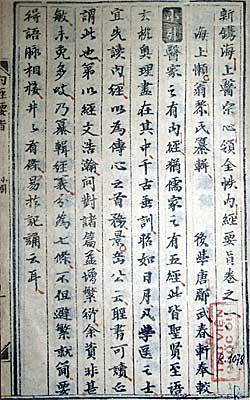 新鐫海上醫宗心領全帙內經要旨卷之一
海上懶翁黎氏纂輯 後學唐郿武春軒奉較
小引 醫家之有內經猶儒家之有五經此皆聖賢至語
玄機奧理盡在其中千古垂訓昭如日月凡學醫之士
宜先讀內經以為傳心之首務景岳公云經書可讀正
謂此也第以經文浩瀚問對諸篇益增繁衍余資非甚
敏未免多岐乃纂輯經義分為七條不但避繁就簡要
得語脈相接井々有條易於記誦云耳
內經要旨
小引